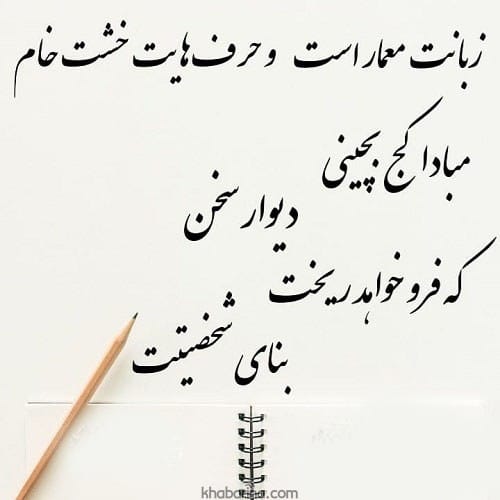 زبانت معمار است و حرف‌هایت خشت خام
مبادا کج بچینی
دیوار سخن
که فرو خواهد ریخت
بنای شخصیتت